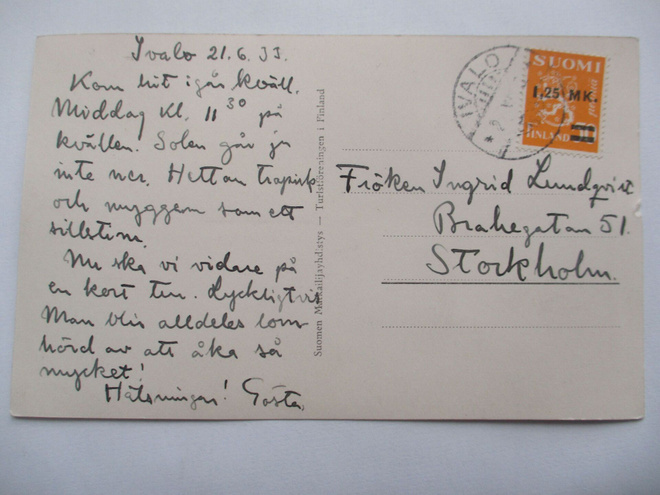 Ivalo 21.6.33.
Kom hit igår kväll.
Middag kl. 11 30 på
kvällen. Solen går ju
inte ner. Hettan tropisk
och myggen som ett
sillstim.
Nu ska vi vidare på
en kort tur. Lyckligtvis
Man blir alldeles lom-
hörd av att åka så
mycket!
Hälsningar! Gösta.
Suomen Matkailijayhdistys — Turistföreningen i Finland
IVALO
SUOMI
1,25 MK.
FINLAND
Fröken Ingrid Lundqvist
Brahegatan 51.
Stockholm.